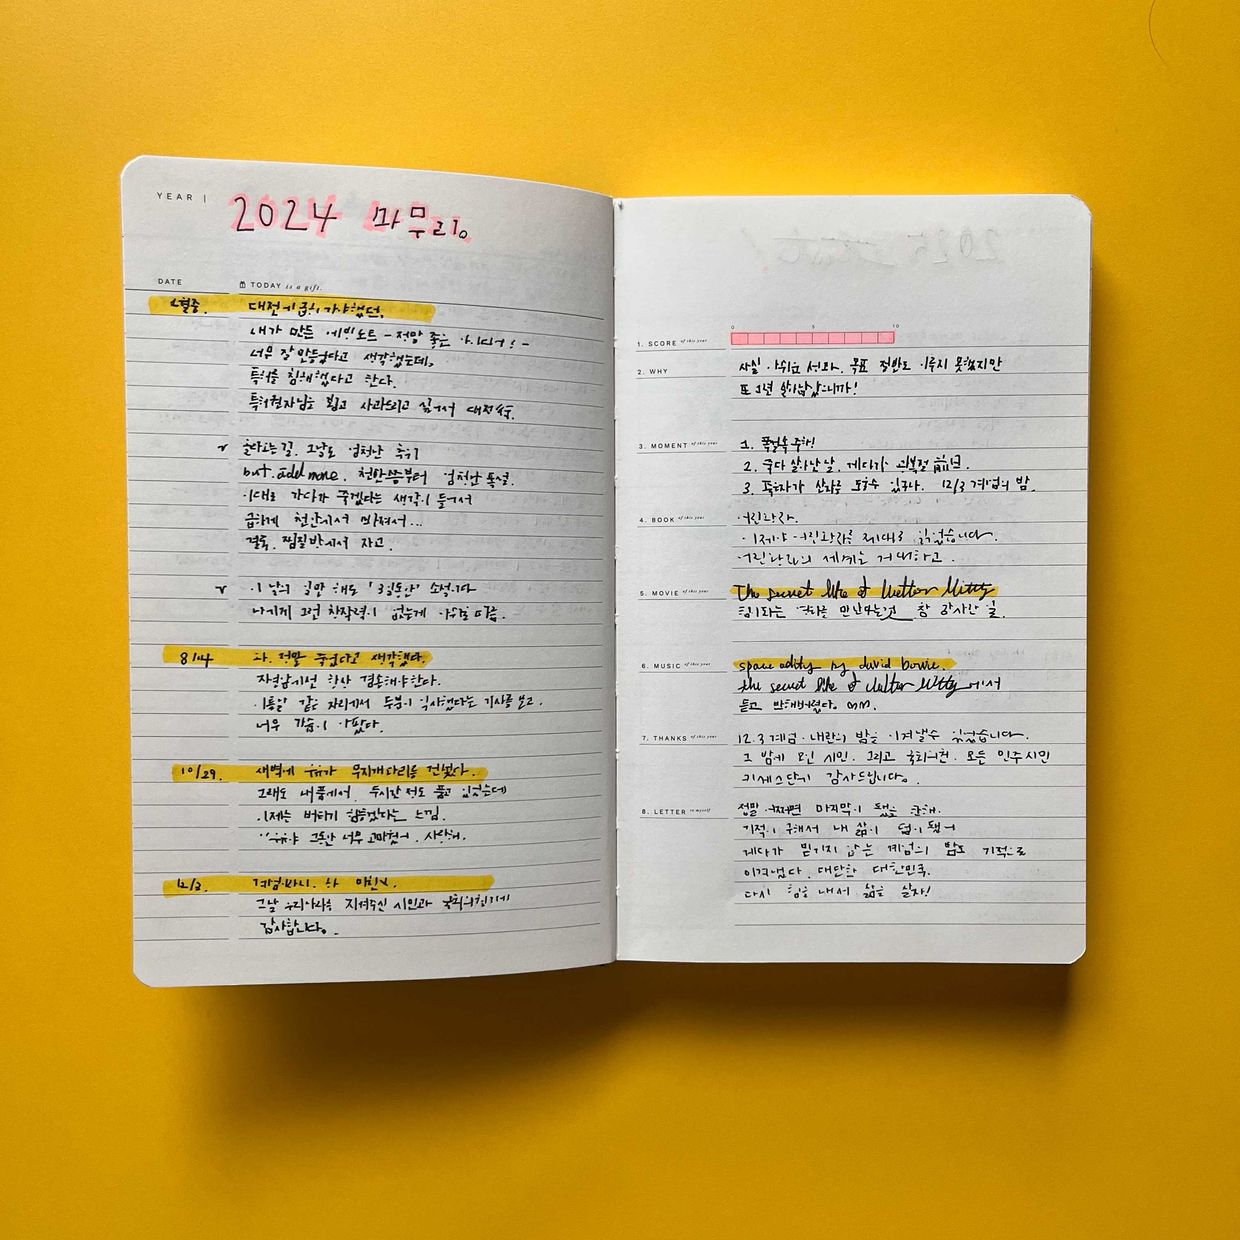 YEAR |
2024 마무리。
DATE
TODAY is a gift.
대전에 급히 가야했던,
내가 만든 - 정말 좋은 아이디어! -
너무 잘 만들었다고 생각했는데,
특허를 침해했다고 한다.
특허권자님을 뵙고 사과드리고 싶어서
그날도 엄청난 추위
but. add more. 천안쯤부터 엄청난 통설.
이대로 가다가 죽겠다는 생각이 들어서
급하게 천안에서 빠져서...
결국. 찜질방에서 자고.
8/14 아. 정말 죽었다고 생각했다.
자연앞에선 항상 겸손해야한다.
같은 자리에서 두분이 익사했다는 기사를 보고.
너무 가슴이 아팠다.
10/29. 새벽에 무지개다리를 건넜다.
그래도 내품에서. 두시간 정도 품고 있었는데
이제는 버티기 힘들었다는 느낌.
그동안 너무 고마웠어. 사랑해.
12/3.
그날 우리나라를 지켜주신 시민과 국회의원에게
감사합니다。
0 5 10
1. SCORE of this year
2. WHY
사실 아쉬운 성과. 목표 절반도 이루지 못했지만
또 1년 살아남았으니까!
3. MOMENT of this year
1. 폭설속 주행!
2. 죽다 살아난 날. 게다가
3. 독재자가 산화를 12/3 계엄의 밤.
4. BOOK of this year
어린왕자.
이제야 어린왕자를 제대로 읽었습니다.
어린왕자의 세계는 거대하고.
5. MOVIE of this year
The secret life of Walter Mitty
영화를 만난다는것 참 감사한 일.
6. MUSIC of this year
space oddity by david bowie.
the secret life of Walter Mitty 에서
듣고 반해버렸다.
7. THANKS of this year
12.3 계엄. 내란의 밤을 이겨낼수 있었습니다.
그 밤에 모인 시민. 그리고 국회의원. 모든 민주시민
키세스단께 감사드립니다。
8. LETTER to myself
정말 어쩌면 마지막이 됐을 한해.
기적이 구해서 내 삶이 덤이 됐어
게다가 믿기지 않는 계엄의 밤도 기적으로
이겨냈다. 대단한 대한민국.
다시 힘을 내서 삶을 살자!